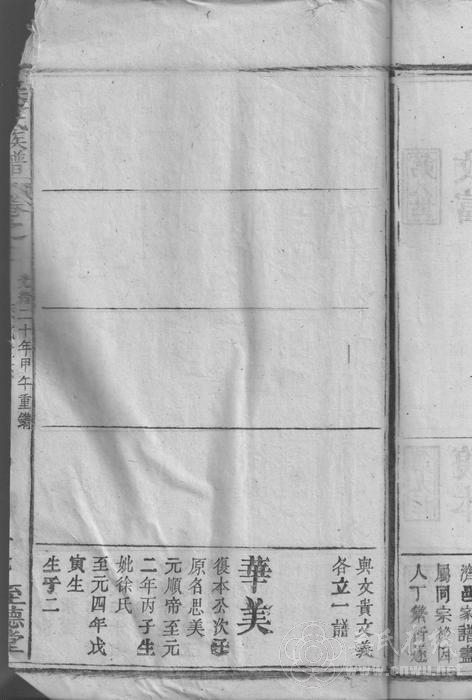 濟 家譜
屬同宗
人丁繁衍
與文貴文義
各立一譜
華美
復本公次子
原名思美
元順帝至元
二年丙子生
妣徐氏
至元四年戊
寅生
生子二
氏族譜
卷之
光緒二十年甲午重鐫
至德堂
www.cnwu.net